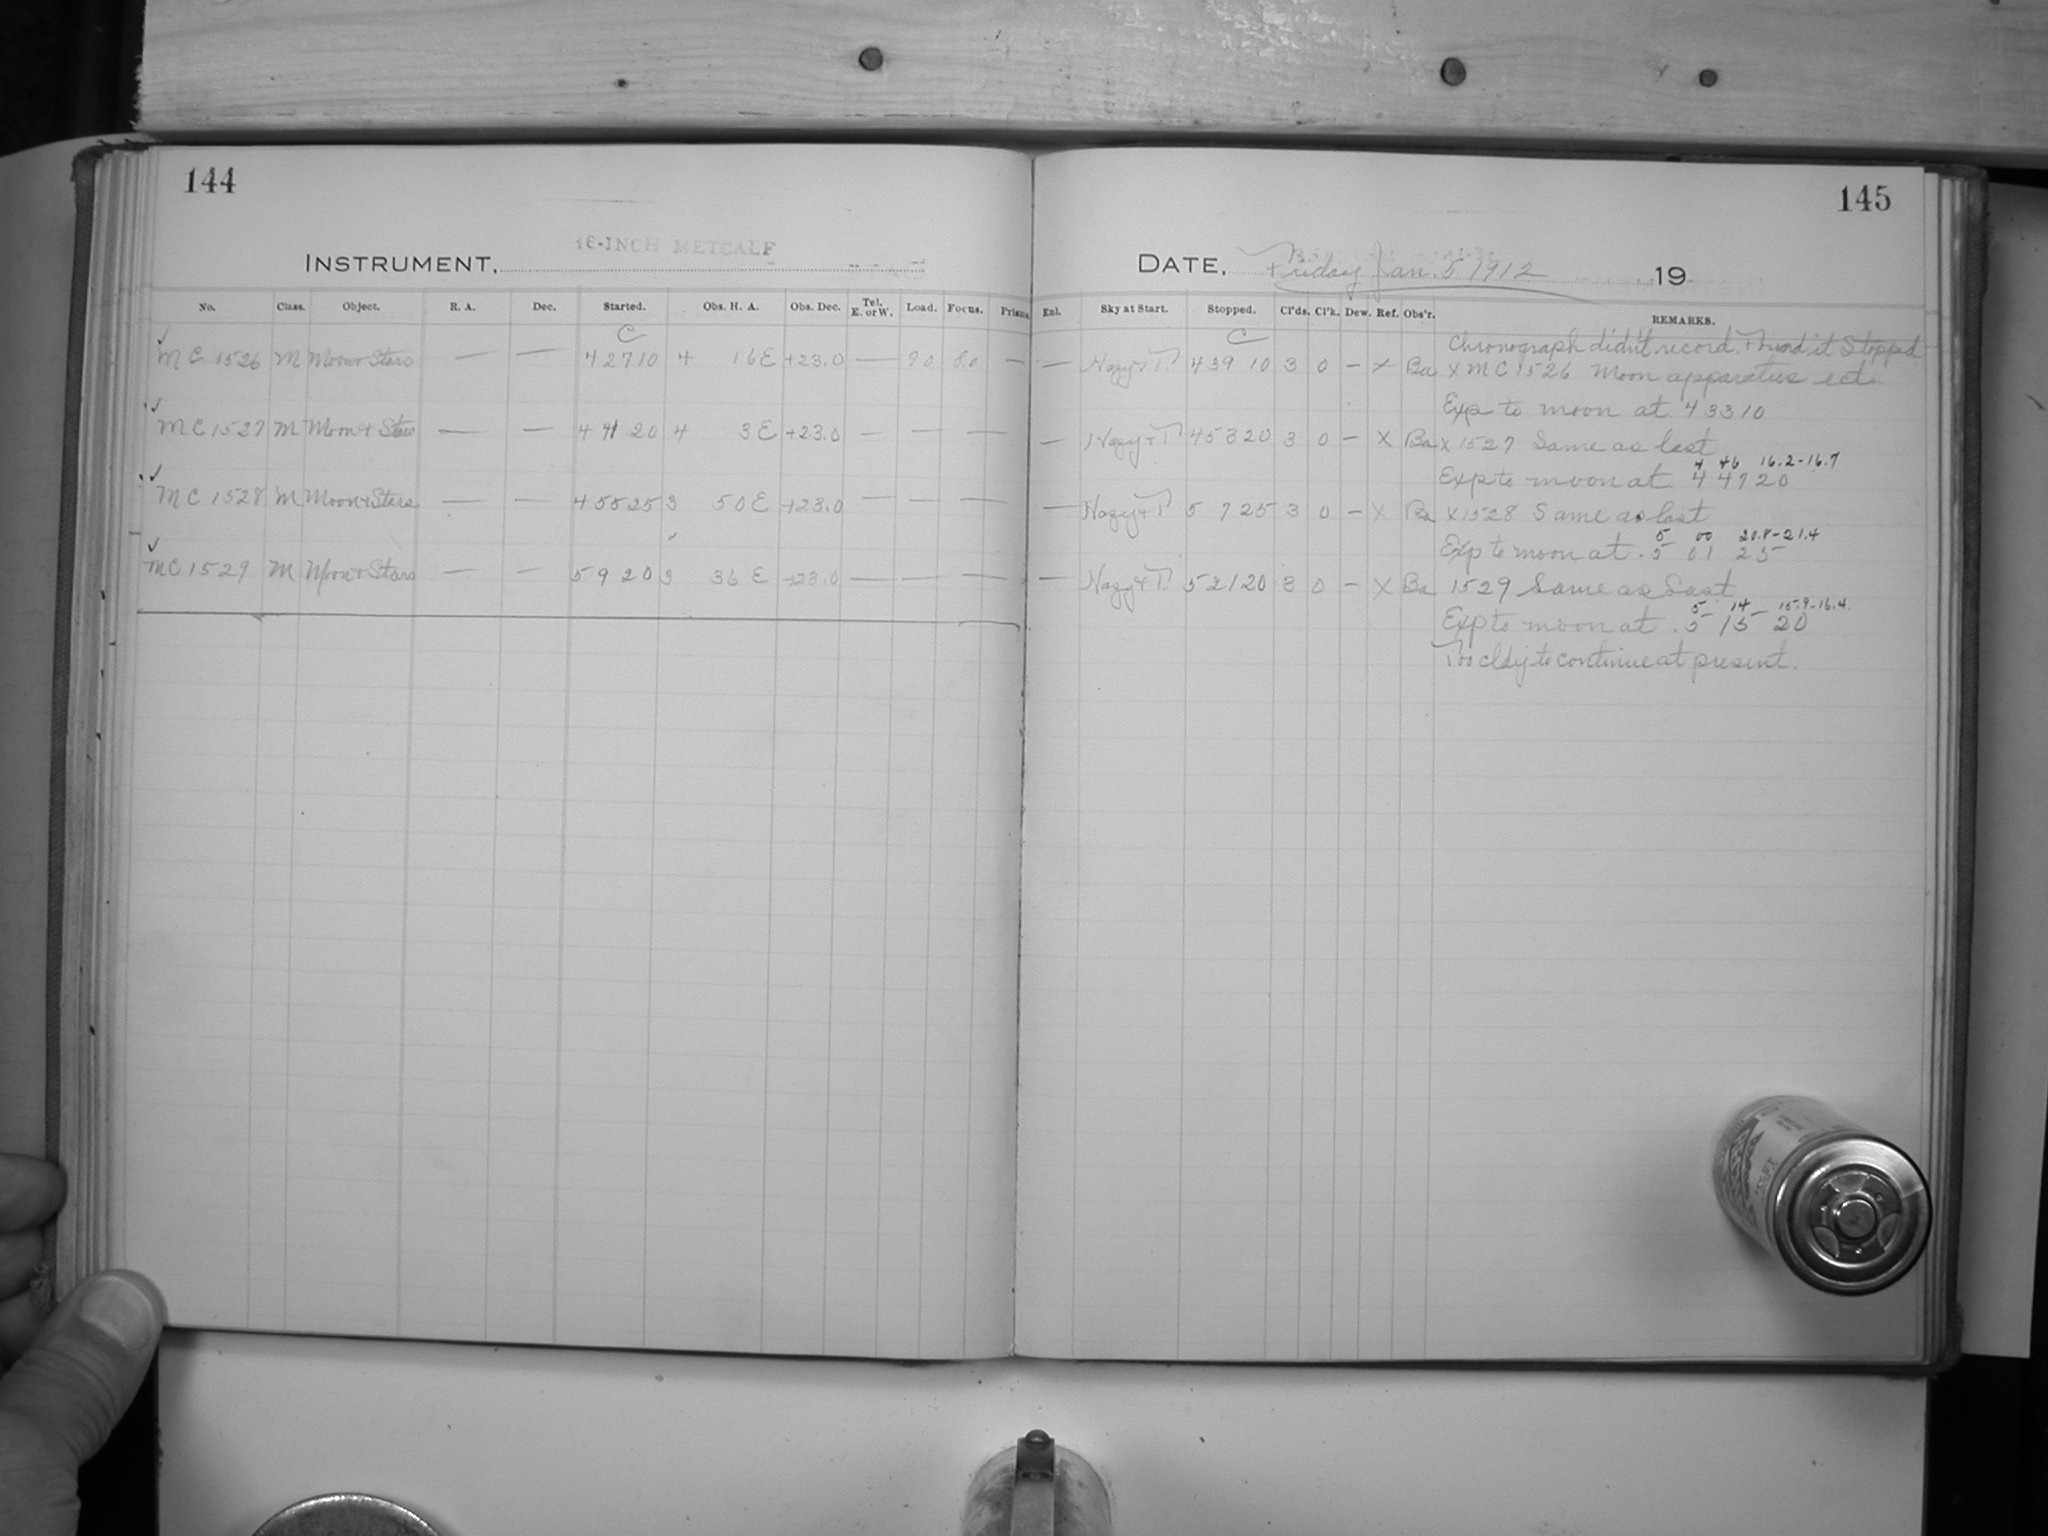 144
16-INCH METCALF
INSTRUMENT,
No. Class. Object. R. A. Dec. Started. Obs. H. A. Obs. Dec. Tel. E. or W. Load. Focus. Prisms.
C
✓ MC 1526 M Moon + Stars — — 4 27 10 4 16 E +23.0 — 9.0 — —
✓ MC 1527 M Moon + Stars — — 4 41 20 4 3 E +23.0 — — — —
✓ MC 1528 M Moon + Stars — — 4 55 25 3 50 E +23.0 — — —
✓ MC 1529 M Moon + Stars — — 5 9 20 3 36 E +23.0 — — —
145
DATE, Friday Jan. 5 1912 19
Enl. Sky at Start. Stopped. Cl'ds. Cl'k. Dew. Ref. Obs'r. REMARKS.
C
Chronograph didn't record. Found it Stopped
— Hazy + T 4 39 10 3 0 — X Ba X MC 1526 Moon apparatus ect.
Exp to moon at 4 33 10
— Hazy + T 4 53 20 3 0 — X Ba X 1527 Same as last
4 46 16.2-16.7
Exp to moon at 4 47 20
— Hazy + T 5 7 25 3 0 — X Ba X 1528 Same as last
5 00 20.8-21.4
Exp to moon at . 5 01 25
— Hazy + T. 5 21 20 3 0 — X Ba 1529 Same as Last
5 14 15.9-16.4.
Exp to moon at . 5 15 20
Too cldy to continue at present.